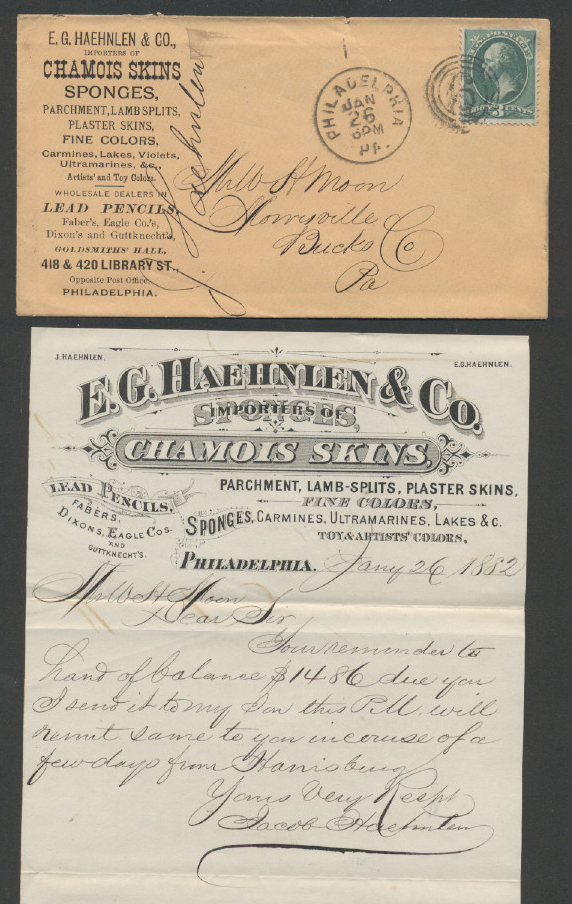 E. G. HAEHNLEN & CO.,
IMPORTERS OF
CHAMOIS SKINS
SPONGES,
PARCHMENT, LAMB SPLITS,
PLASTER SKINS,
FINE COLORS,
Carmines, Lakes, Violets,
Ultramarines, &c.,
Artists' and Toy Colors.
WHOLESALE DEALERS IN
LEAD PENCILS,
Faber's, Eagle Co.'s,
Dixon's and Guttknecht's,
GOLDSMITHS' HALL,
418 & 420 LIBRARY ST.,
Opposite Post Office,
PHILADELPHIA.
J. Haehnlen
PHILADELPHIA
JAN
26
6PM
PA.
U.S. POSTAGE
3 CENTS
Mr W H Moon
Morrisville
Bucks Co
Pa
J. HAEHNLEN.
E.G. HAEHNLEN.
E. G. HAEHNLEN & CO.
SPONGES,
IMPORTERS OF
CHAMOIS SKINS,
LEAD PENCILS,
FABERS,
DIXONS, EAGLE COS.
AND
GUTTKNECHT'S.
PARCHMENT, LAMB-SPLITS, PLASTER SKINS,
FINE COLORS,
SPONGES, CARMINES, ULTRAMARINES, LAKES & C.
TOY & ARTISTS' COLORS,
PHILADELPHIA. Jany 26 1882
Mr W H Moon
Dear Sir
Your reminder to
hand of balance $14 86 due you
I send it to my Son this P.M. will
remit same to you in course of a
few days from Harrisburg
Yours Very Respt
Jacob Haehnlen